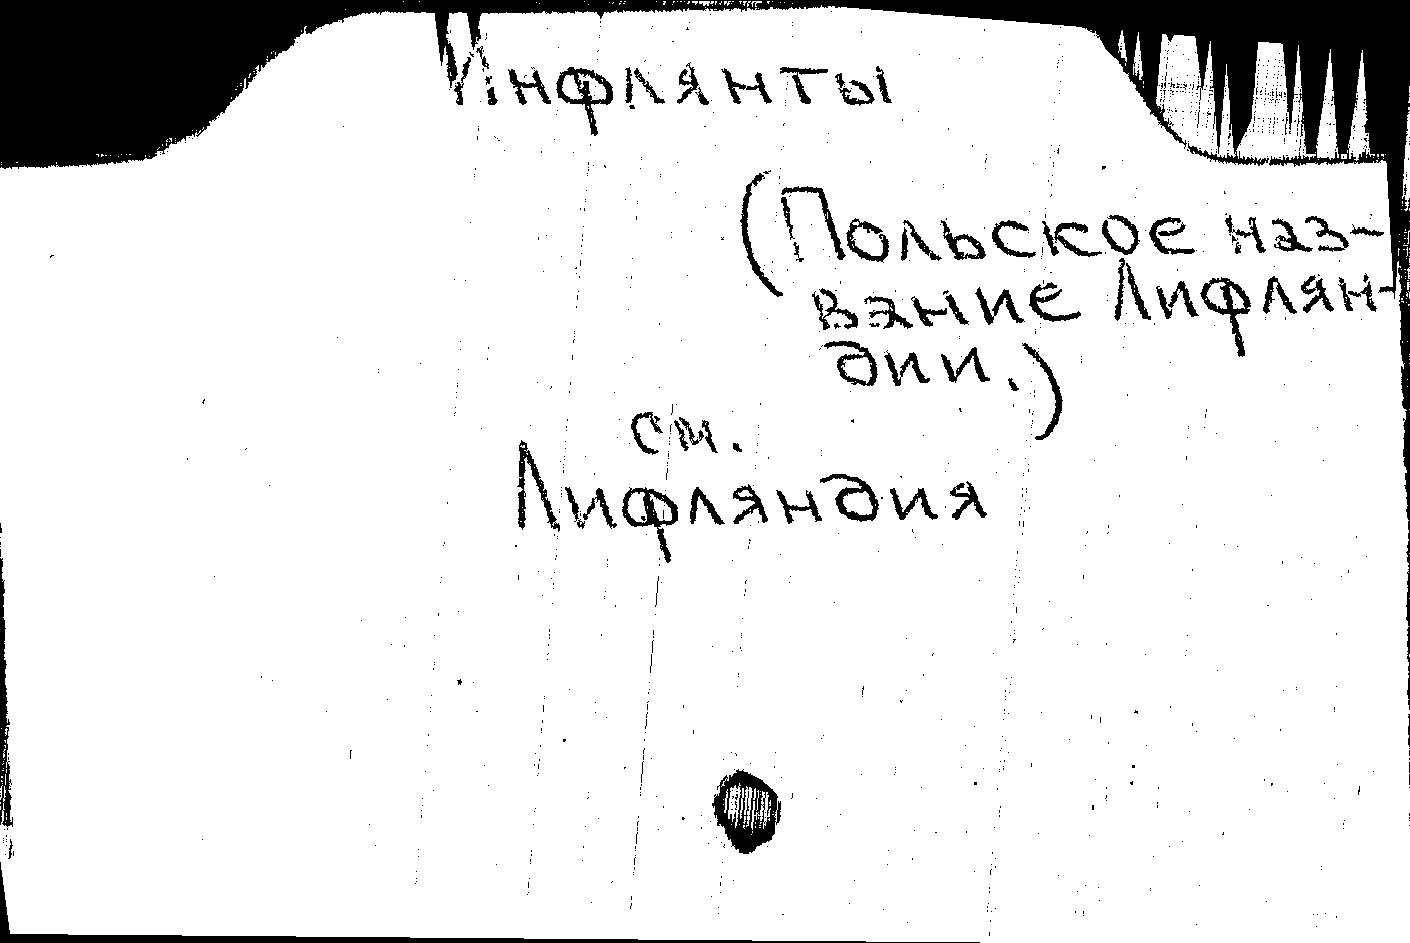 Инфлянты
(Польское наз-
вание Лифлян-
дии.)
см.
Лифляндия